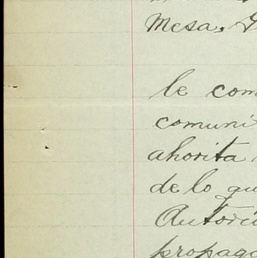 Mesa,
le com
comuni
ahorita
de lo qu
Autori
propaga